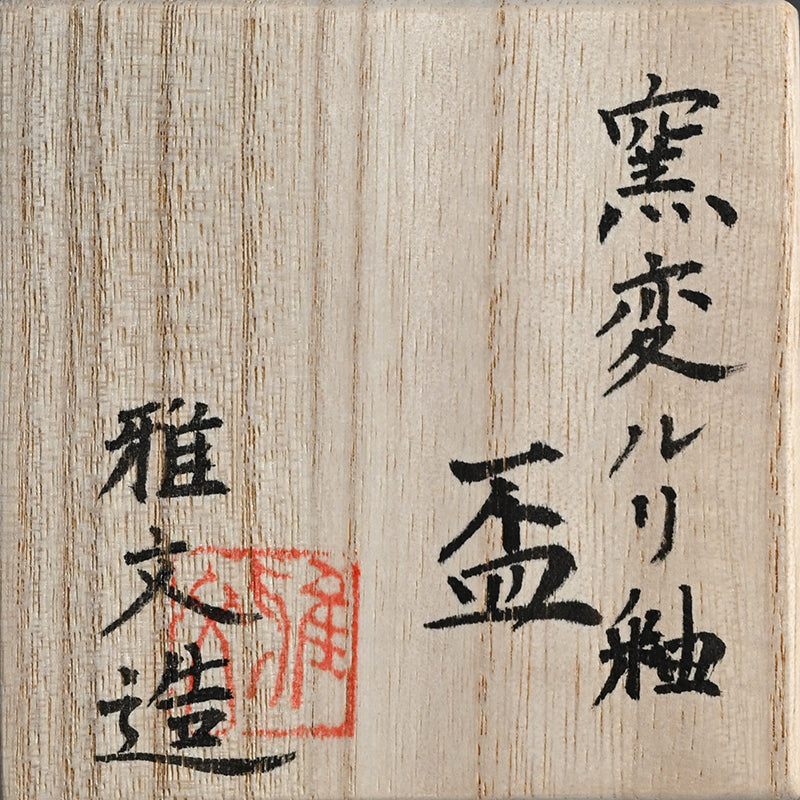 窯変ルリ釉
盃
雅文造
雅文